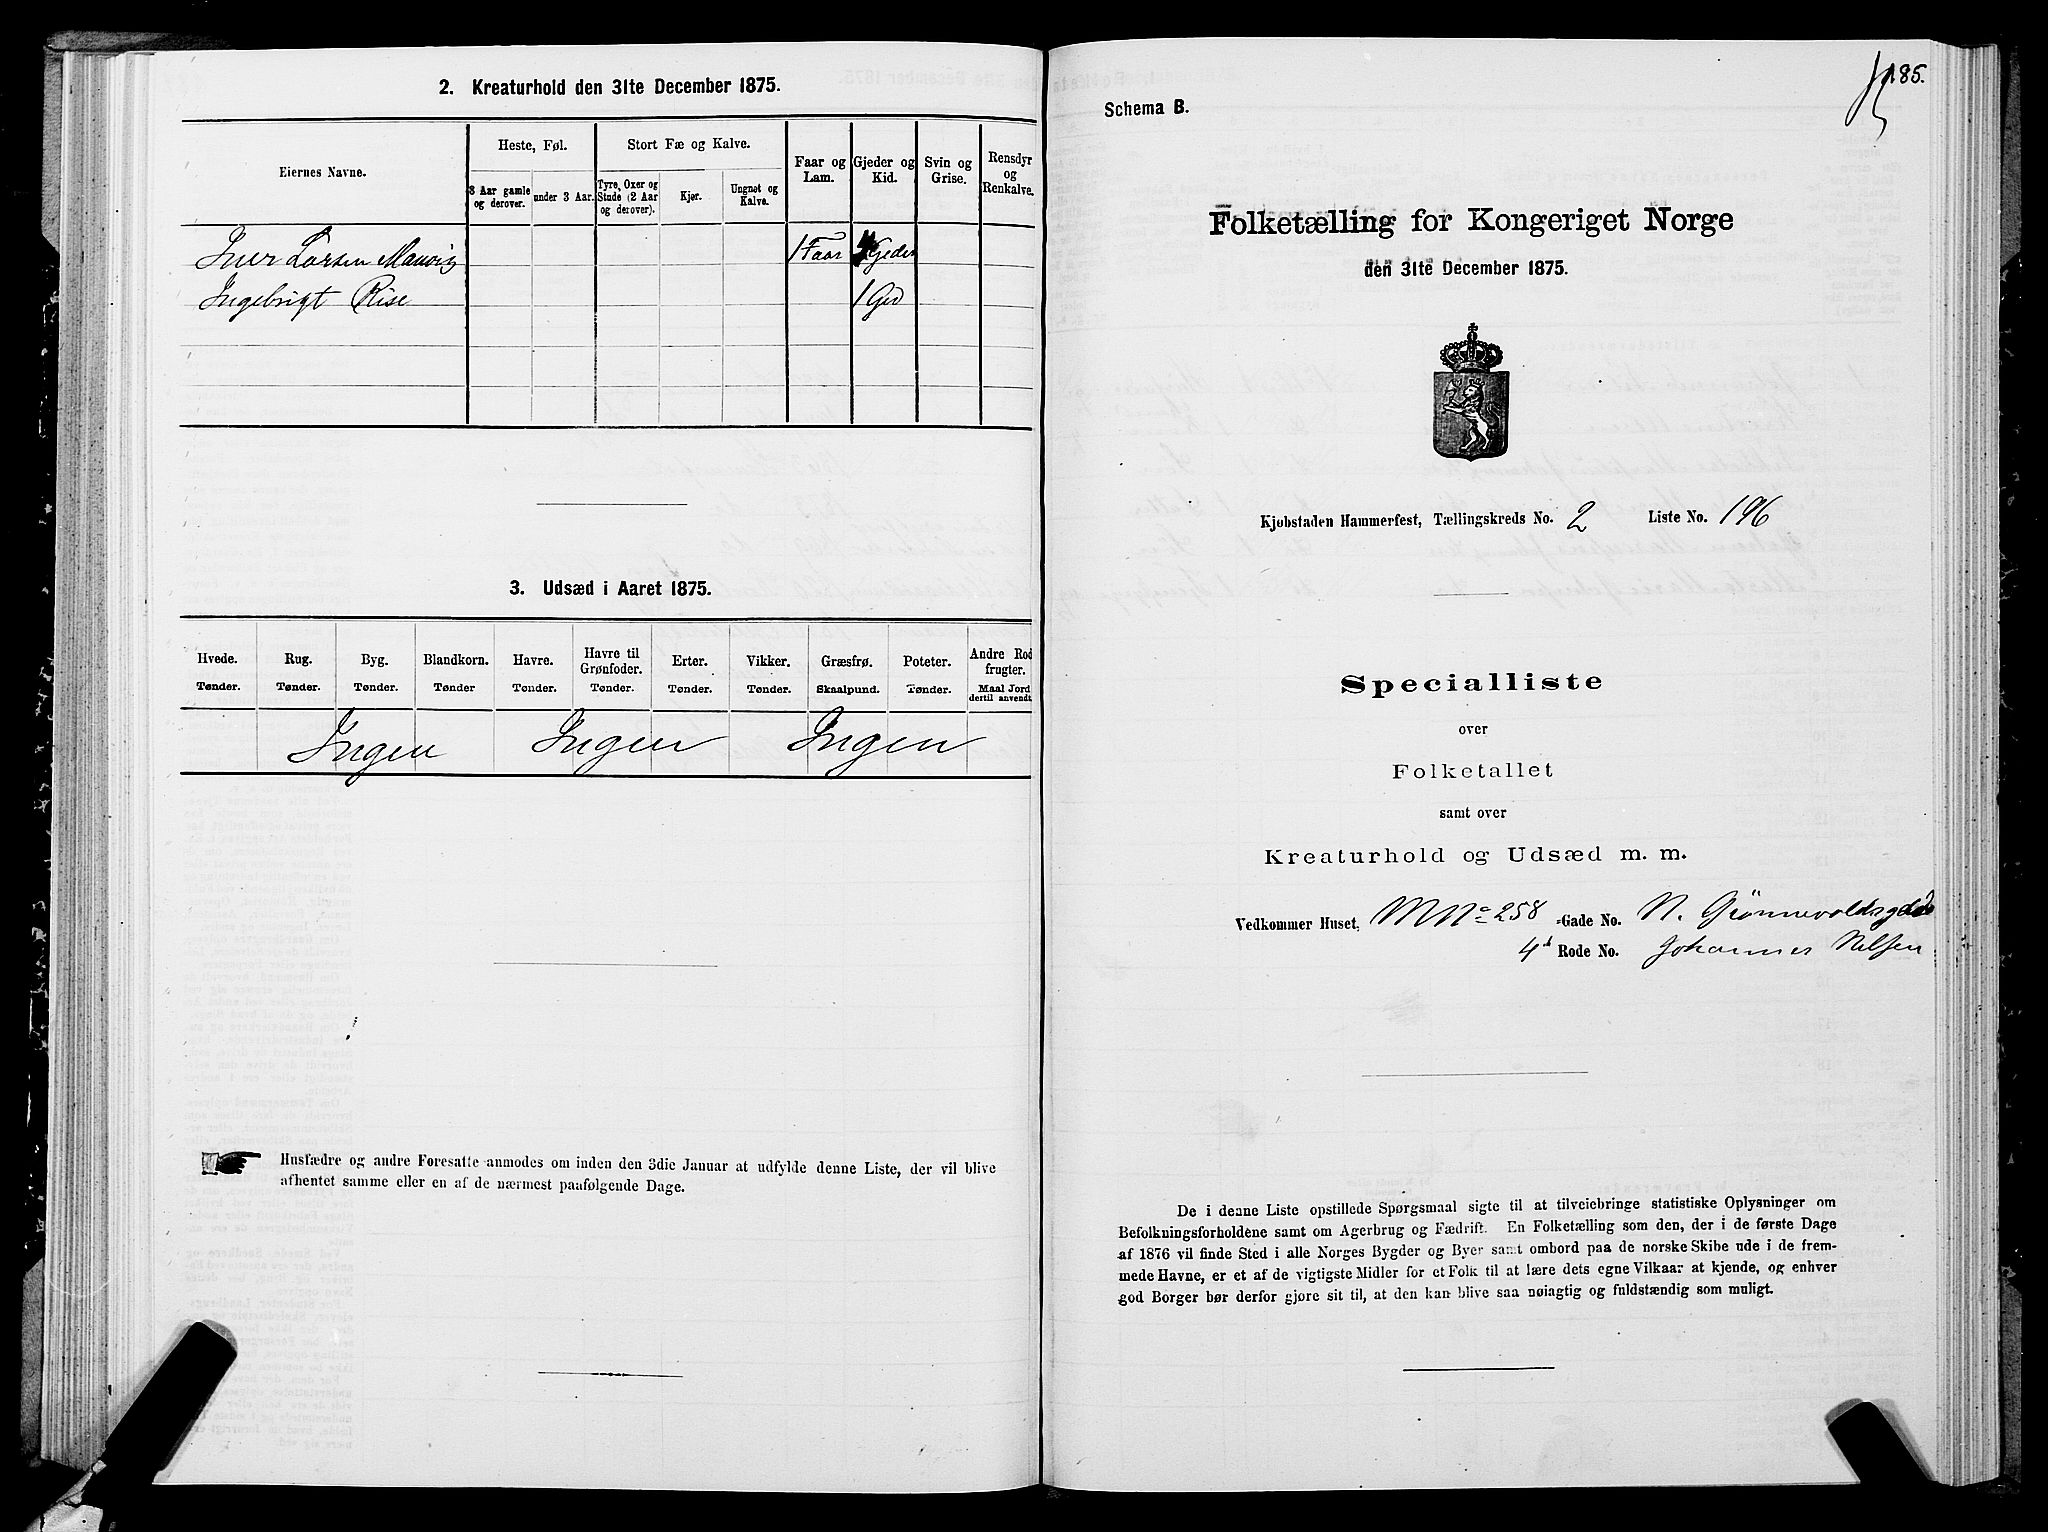 2. Kreaturhold den 31te December 1875.
Eiernes Navne.
Heste, Føl.
Stort Fæ og Kalve.
Faar og Lam.
Gjeder og Kid.
Svin og Grise.
Rensdyr og Renkalve.
3 Aar gamle og derover.
under 3 Aar.
Tyre, Oxer og Stude (2 Aar og derover).
Kjør.
Ungnøt og Kalve.
Iver Larsen 1 Faar 4 Geder
Ingebrigt Rise 1 Ged
3. Udsæd i Aaret 1875.
Hvede. Rug. Byg. Blandkorn. Havre. Havre til Grønfoder. Erter. Vikker. Græsfrø. Poteter. Andre Rodfrugter.
Tønder. Tønder. Tønder. Tønder Tønder. Tønder. Tønder. Tønder. Skaalpund. Tønder. Maal Jord dertil anvendt.
Ingen Ingen Ingen
Husfædre og andre Foresatte anmodes om inden den 3die Januar at udfylde denne Liste, der vil blive
afhentet samme eller en af de nærmest paafølgende Dage.
185.
Schema B.
Folketælling for Kongeriget Norge
den 31te December 1875.
Kjøbstaden Hammerfest, Tællingskreds No. 2 Liste No. 196
Specialliste
over
Folketallet
samt over
Kreaturhold og Udsæd m. m.
Vedkommer Huset, MNo 258 -Gade No. N. Grønnevoldsgade
4d Rode No. Johannes Nilsen
De i denne Liste opstillede Spørgsmaal sigte til at tilveiebringe statistiske Oplysninger om
Befolkningsforholdene samt om Agerbrug og Fædrift. En Folketælling som den, der i de første Dage
af 1876 vil finde Sted i alle Norges Bygder og Byer samt ombord paa de norske Skibe ude i de frem-
mede Havne, er et af de vigtigste Midler for et Folk til at lære dets egne Vilkaar at kjende, og enhver
god Borger bør derfor gjøre sit til, at den kan blive saa nøiagtig og fuldstændig som muligt.